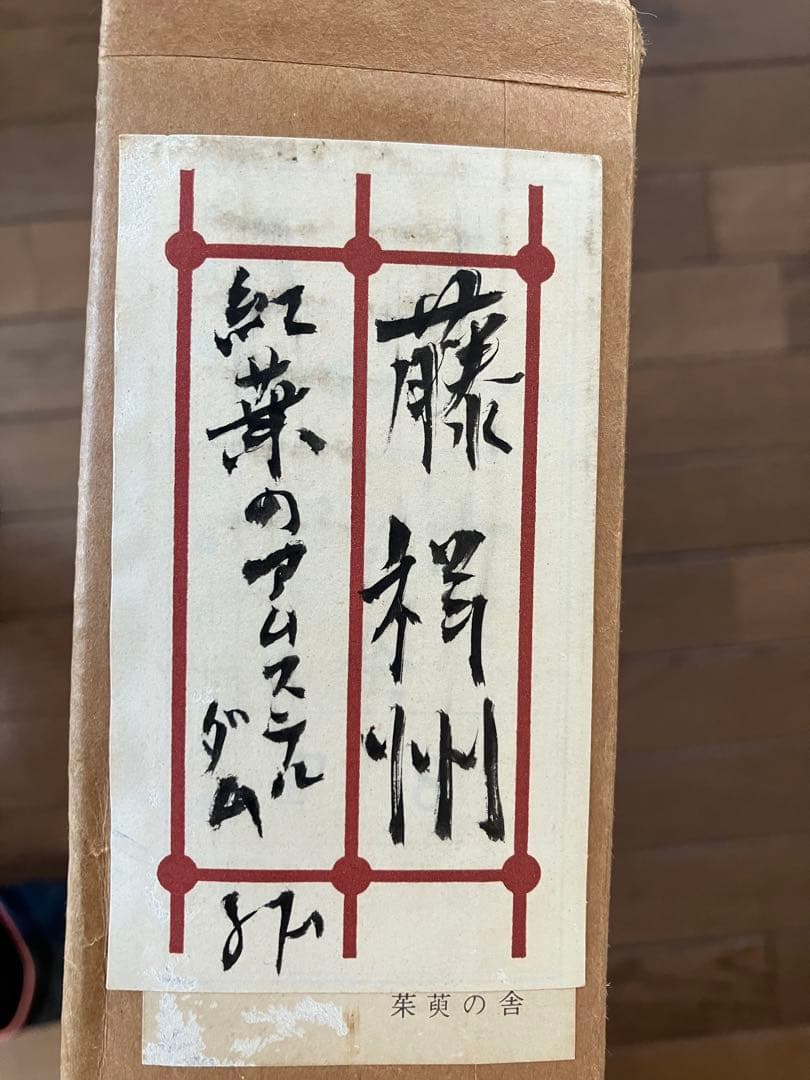 藤 州
紅葉のアムステル
ダム
茱萸の舎